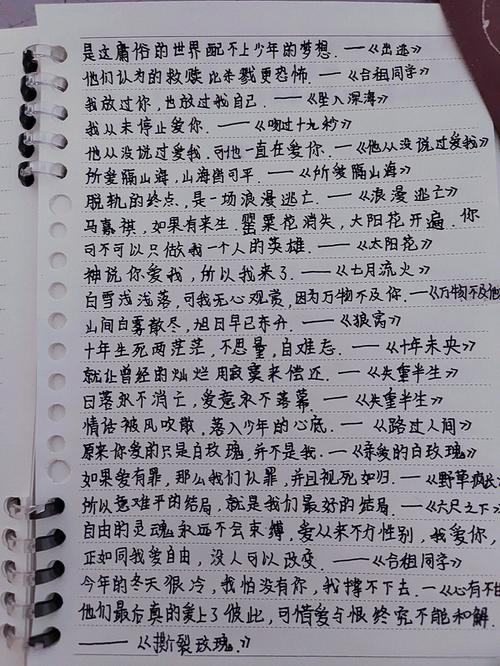 是这庸俗的世界配不上少年的梦想. ——《出逃》
他们认为的救赎比杀戮更恐怖. ——《合租同学》
我放过你, 也放过我自己. ——《坠入深海》
我从未停止爱你. ——《吻过十九秒》
他从没说过爱我. 可他一直在爱你. ——《他从没说过爱我》
所爱隔山海, 山海皆可平. ——《所爱隔山海》
脱轨的终点, 是一场浪漫逃亡. ——《浪漫逃亡》
马嘉祺, 如果有来生. 罂粟花消失, 太阳花开遍. 你
可不可以只做我一个人的英雄. ——《太阳花》
神说你爱我, 所以我来了. ——《七月流火》
白雪浅浅落, 可我无心观赏, 因为万物不及你. ——《万物不及他
山间白雾散尽, 旭日早已东升. ——《狼窝》
十年生死两茫茫, 不思量, 自难忘. ——《十年未央》
就让曾经的灿烂用寂寞来偿还. ——《失重半生》
日落永不消亡, 爱意永不落幕. ——《失重半生》
情话被风吹散, 落入少年的心底. ——《路过人间》
原来你爱的只是白玫瑰, 并不是我. ——《亲爱的白玫瑰》
如果爱有罪, 那么我们认罪, 并且视死如归. ——《野草疯长
所以意难平的结局, 就是我们最好的结局. ——《六尺之下》
自由的灵魂永远不会束缚, 爱从来不方性别, 我爱你,
正如同我爱自由, 没人可以改变. ——《合租同学》
今年的冬天很冷, 我怕没有你, 我撑不下去. ——《心有不
他们最后真的爱上了彼此, 可惜爱与恨终究不能和解.
——《撕裂玫瑰.》